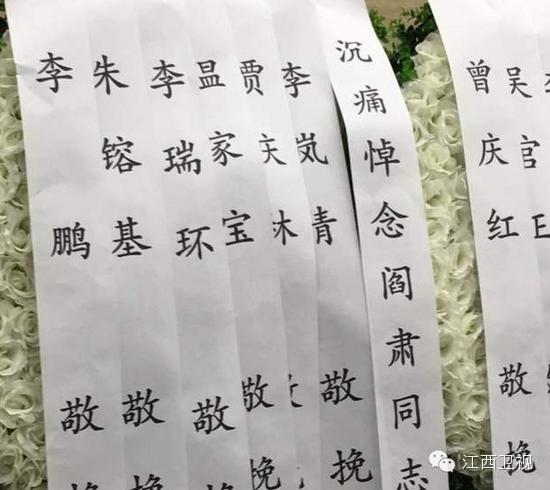 李鹏敬挽
朱镕基敬挽
李瑞环敬挽
温家宝敬挽
贾庆林
李岚清敬挽
沉痛悼念阎肃同志
曾庆红敬挽
吴官正
江西卫视